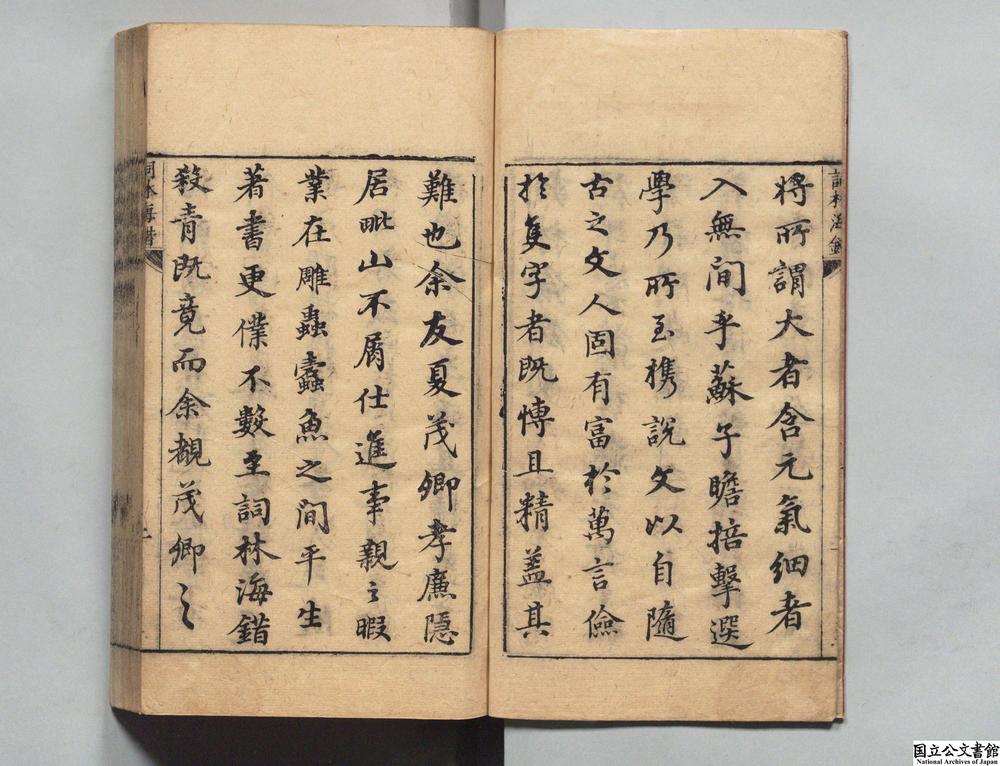 將所謂大者含元氣細者
入無間乎蘇子瞻掊擊選
學乃所至携說文以自隨
古之文人固有富於萬言儉
於隻字者既愽且精葢其
難也余友夏茂卿孝廉隱
居毗山不屑仕進事親之暇
業在雕蟲蠹魚之間平生
著書更僕不數至詞林海錯
殺青既竟而余覩茂卿之
詞林海錯
國立公文書館
National Archives of Japan